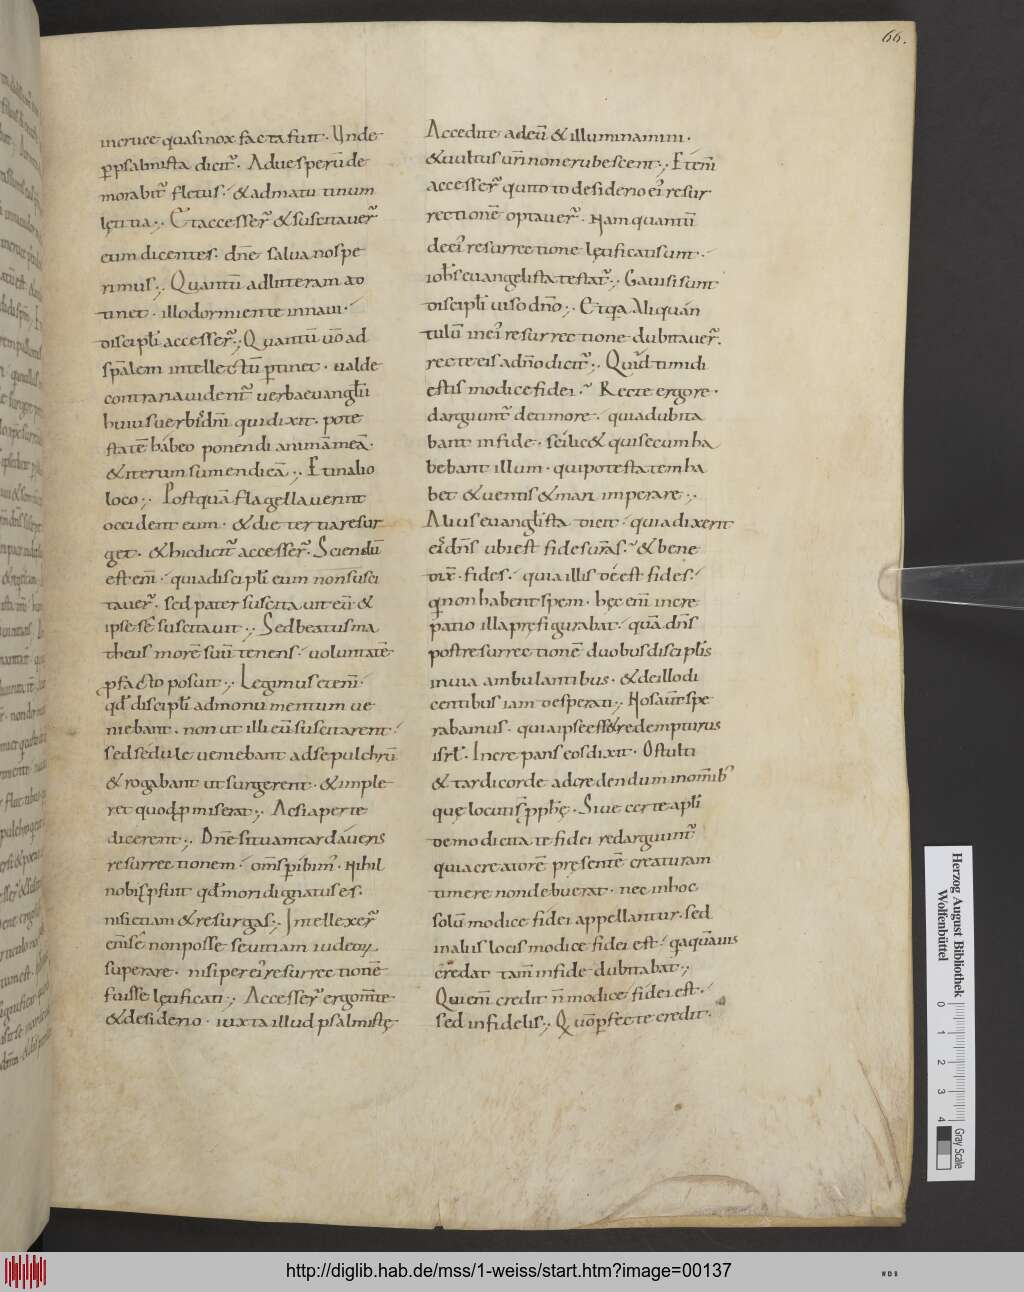 66.
incruce quasi nox facta fuit. Unde
p̱psalmista dicit̃. Aduesperū de
morabit̃ fletus. & admatutinum
lętitia. Et accesser̃ & suscitauer̃
eum dicentes. dn̄e salua nos pe
rimus. Quantū ad litteram at
tinet. illo dormiente in naui.
discipl̄i accesser̃. Quantū uō ad
sp̄alem intellectū ꝑtinet. ualde
contraria uident̃ uerba euangl̄ii
huius uerbi dn̄i qui dixit. pote
statē habeo ponendi animā meā.
& iterum sumendi eā. Et in alio
loco. Postquā flagellauerint
occident eum. & die tertia resur
get. & hic dicit̃ accesser̃. Sciendū
est eni̅. quia discipl̄i eum non susci
tauer̃. sed pater suscitauit eū &
ipse sē suscitauit. Sed beatus ma
theus morē suū tenens. uoluntatē
p facto posuit. Legimus eteni̅.
qd̄ discipl̄i ad monumentum ue
niebant. non ut illi eū suscitarent.
sed sedule ueniebant ad sepulchrū
& rogabant ut surgeret. & imple
ret quod ꝓmiserat. Ac si aperte
dicerent. Dn̄e situam tardaueris
resurrectionem. om̄s ꝑibim̃. Nihil
nobis ꝓfuit qd̄ mori dignatus es.
nisi etiam & resurgas. Intellexer̃
eni̅ sē non posse seuitiam iudeoꝝ
superare. nisi per ei̓ resurrectionē
fuisse lętificati. Accesser̃ ergo m̄te
& desiderio. iuxta illud psalmistę
Accedite ad eū & illuminamini.
& uultus ur̄i non erubescent. Eteni̅
accesser̃ quito to desiderio ei̓ resur
rectionē optauer̃. Nam quantū
de ei̓ resurrectione lętificati sunt.
ioh̄s euangelista testat̃. Gauisi sunt
discipl̄i uiso dn̄o. Et qa aliquan
tulū in ei̓ resurrectione dubitauer̃.
recte eis a dn̄o dicit̃. Quid timidi
estis modice fidei. Recte ergo re
darguunt̃ de timore. quia dubita
bant in fide. scilic& qui secum ha
bebant illum. qui potestatem ha
bet & uentis & mari imperare.
Alius euangl̄ista dicit. quia dixerit
ei̓ dn̄s ubi est fides ur̄as. & bene
dix̄. fides. quia illis deest fides.
qi non habent spem. hęc eni̅ incre
patio illa pręfigurabat. quā dn̄s
post resurrectionē duobus discipl̄is
in uia ambulantibus. & de illo di
centibus iam desperati. Nos aut̄ spe
rabamus. quia ipse ess& redempturus
isrl̄. Increpans eos dixit. O stulti
& tardi corde ad credendum in omnib̓
quę locuti s̄ ꝓph̄ę. Siue certe apl̄i
de modicitate fidei redarguunt̃
quia creatorē pręsentē creaturam
timere non debuerat. nec in hoc
solū modice fidei appellantur. sed
in aliis locis modice fidei est. qa quāuis
credat tam̄ in fide dubitabat.
Qui eni̅ credit n̄ modicę fidei est.
sed infidelis. Q uō ꝑfecte credit.
Herzog August Bibliothek
Wolfenbüttel
0 1 2 3 4
Gray Scale
http://diglib.hab.de/mss/1-weiss/start.htm?image=00137